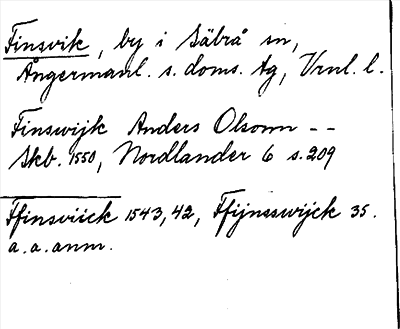 Finsvik, by i Säbrå sn,
Ångermanl. s. doms. tg, Vrnl. l.
Finswijk Anders Olsonn - -
Skb. 1550, Nordlander 6 s. 209
Ffinsviick 1543, 42, Ffijnsswijck 35.
a. a. anm.